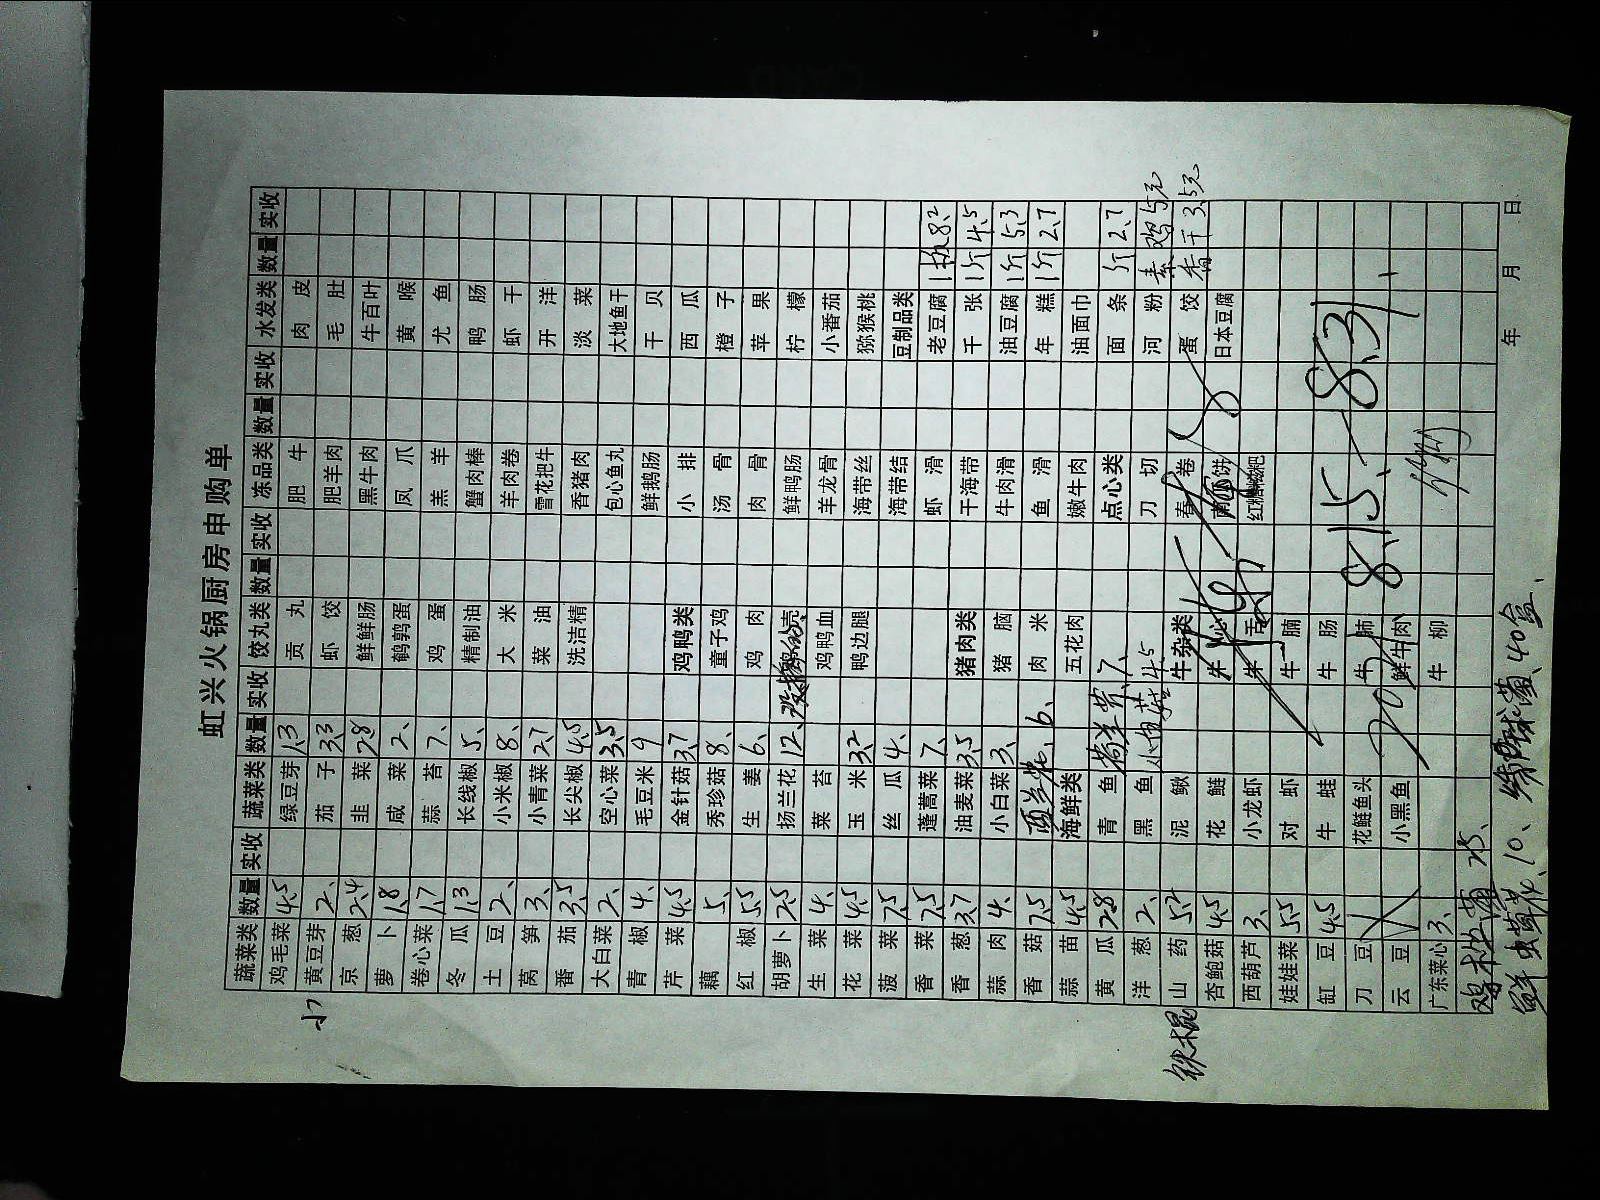 虹兴火锅厨房申购单
蔬菜类 数量 实收 蔬菜类 数量 实收 饺丸类 数量 实收 冻品类 数量 实收 水发类 数量 实收
鸡毛菜 4.5 绿豆芽 1.3 贡丸 肥牛 肉皮
黄豆芽 2、 茄子 3.3 虾饺 肥羊肉 毛肚
京葱 2.4 韭菜 2.8 鲜鲜肠 黑牛肉 牛百叶
萝卜 1.8 咸菜 2、 鹌鹑蛋 凤爪 黄喉
卷心菜 1.7 蒜苔 7、 鸡蛋 羔羊 尤鱼
冬瓜 1.3 长线椒 5、 精制油 蟹肉棒 鸭肠
土豆 2、 小米椒 8、 大米 羊肉卷 虾干
莴笋 3、 小青菜 2.7 菜油 雪花把牛 开洋
番茄 3.5 长尖椒 4.5 洗洁精 香猪肉 淡菜
大白菜 2、 空心菜 3.5 包心鱼丸 大地鱼干
青椒 4、 毛豆米 9 鲜鹅肠 干贝
芹菜 4.5 金针菇 3.7 鸡鸭类 小排 西瓜
藕 5、 秀珍菇 8、 童子鸡 汤骨 橙子
红椒 5.5 生姜 6、 鸡肉 肉骨 苹果
胡萝卜 2.5 扬兰花 12、 鲜鸭肠 柠檬
生菜 4、 菜苔 鸡鸭血 羊龙骨 小番茄
花菜 4.5 玉米 3.2 鸭边腿 海带丝 猕猴桃
菠菜 7.5 丝瓜 4、 海带结 豆制品类
香菜 7.5 蓬蒿菜 7、 虾滑 老豆腐 1板 8.2
香葱 3.7 油麦菜 3.5 猪肉类 干海带 千张 1斤 4.5
蒜肉 4、 小白菜 3、 猪脑 牛肉滑 油豆腐 1斤 5.3
香菇 7.5 西兰花、 6、 肉米 鱼滑 年糕 1斤 2.7
蒜苗 4.5 海鲜类 五花肉 嫩牛肉 油面巾
黄瓜 2.8 青鱼 茼羊菜、7、 点心类 面条 1斤 2.7
洋葱 2、 黑鱼 4.5 刀切 河粉 素鸡 5元
铁棍 山药 5.2 泥鳅 牛杂类 春卷 蛋饺 香干 3.5元
杏鲍菇 4.5 花鲢 日本豆腐
西葫芦 3、 小龙虾 红糖糍粑
娃娃菜 5.5 对虾 牛腩
缸豆 4.5 牛蛙 牛肠
刀豆 花鲢鱼头
云豆 小黑鱼 鲜牛肉
广东菜心 3、 牛柳
8.15、—8.31、
鲜虫草花、10、 40盒、
年 月 日